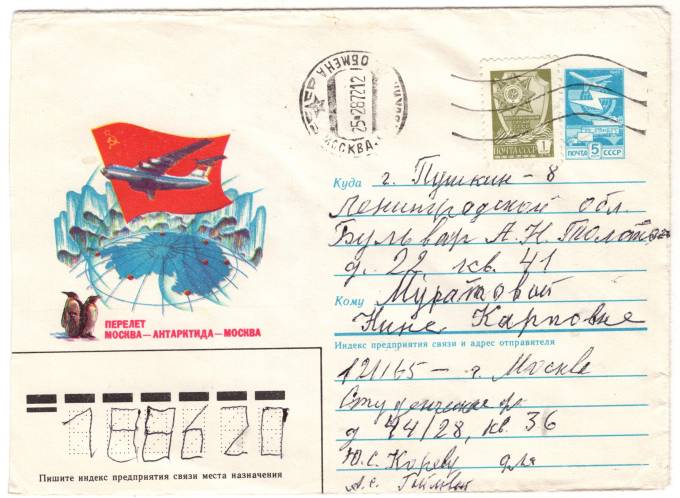 ОБМЕНА
25-2 28721 2
МОСКВА
1 К
ПОЧТА СССР
ПОЧТА 5К СССР
Куда г. Пушкин-8
Ленинградской обл.
Бульвар А.Н. Толстого
д. 22, кв. 41
Кому Муратовой
Нине Карповне
ПЕРЕЛЕТ
МОСКВА—АНТАРКТИДА—МОСКВА
Индекс предприятия связи и адрес отправителя
121165 – г. Москва
Студенческая
д 44/28, кв. 36
Ю.С. для
А.С.
188620
Пишите индекс предприятия связи места назначения